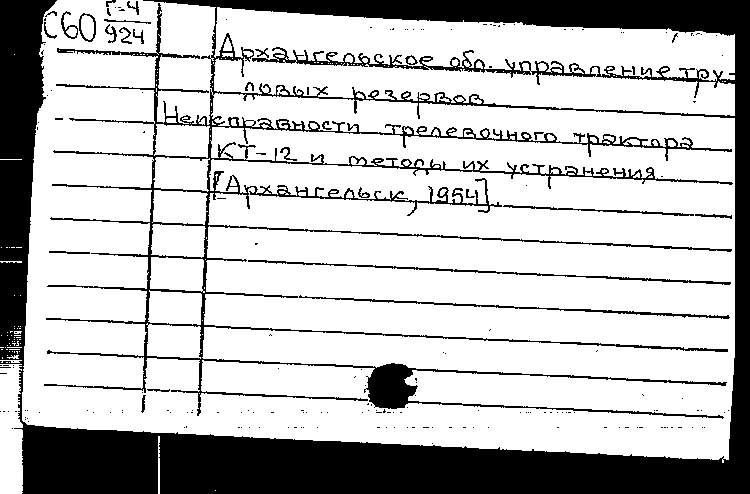 С60 Г-4
924
Архангельское обл. управление тру-
довых резервов.
Неисправности трелевочного трактора
КТ-12 и методы их устранения.
[Архангельск, 1954].